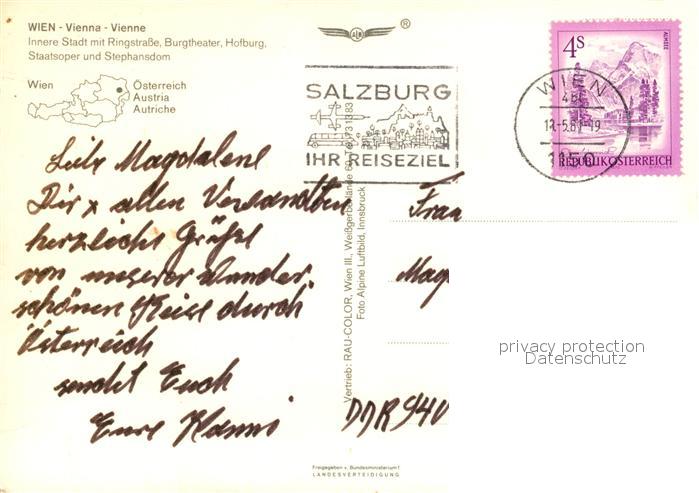 WIEN - Vienna - Vienne
Innere Stadt mit Ringstraße, Burgtheater, Hofburg,
Staatsoper und Stephansdom
Wien
Österreich
Austria
Autriche
®
SALZBURG
IHR REISEZIEL
WIEN
1150
4S
ALMSEE
REPUBLIK ÖSTERREICH
Magdalene
Dir + allen Verwandten
herzliche Grüße
von unserer wunder
schönen Reise durch
Österreich
sendet Euch
Eure Hanni
Vertrieb: RAU-COLOR, Wien III., Weißgerberlände
Foto Alpine Luftbild, Innsbruck
Frau
Mag
DDR 940
privacy protection
Datenschutz
Freigegeben v. Bundesministerium f.
LANDESVERTEIDIGUNG